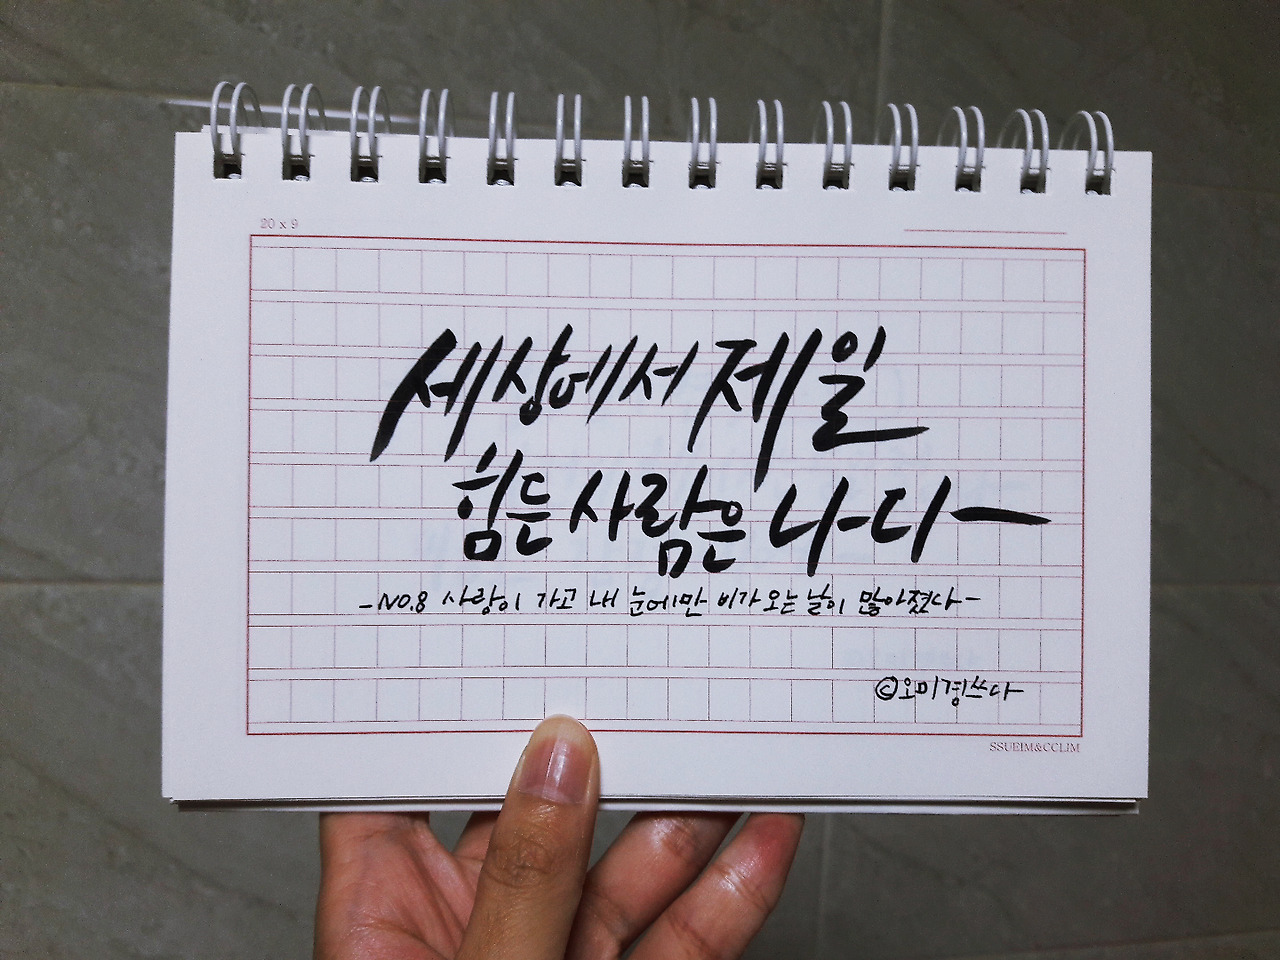 20 x 9
세상에서 제일
힘든 사람은 나다
- NO.8 사랑이 가고 내 눈에만 비가 오는 날이 많아졌다 -
©오미경쓰다
SSUEIM&CCLIM